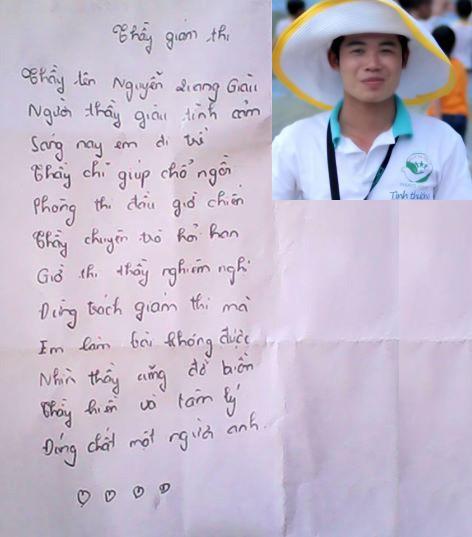 Thầy giám thị
Thầy tên Nguyễn Quang Giàu
Người thầy giàu tình cảm
Sáng nay em đi trễ
Thầy chỉ giúp chổ ngồi
Phòng thi đầu giờ chiều
Thầy chuyện trò hỏi han
Giờ thi thầy nghiêm nghị
Đừng trách giám thị mà
Em làm bài không được
Nhìn thầy cũng đỡ buồn
Thầy hiền và tâm lý
Đúng chất một người anh.
Tình thương